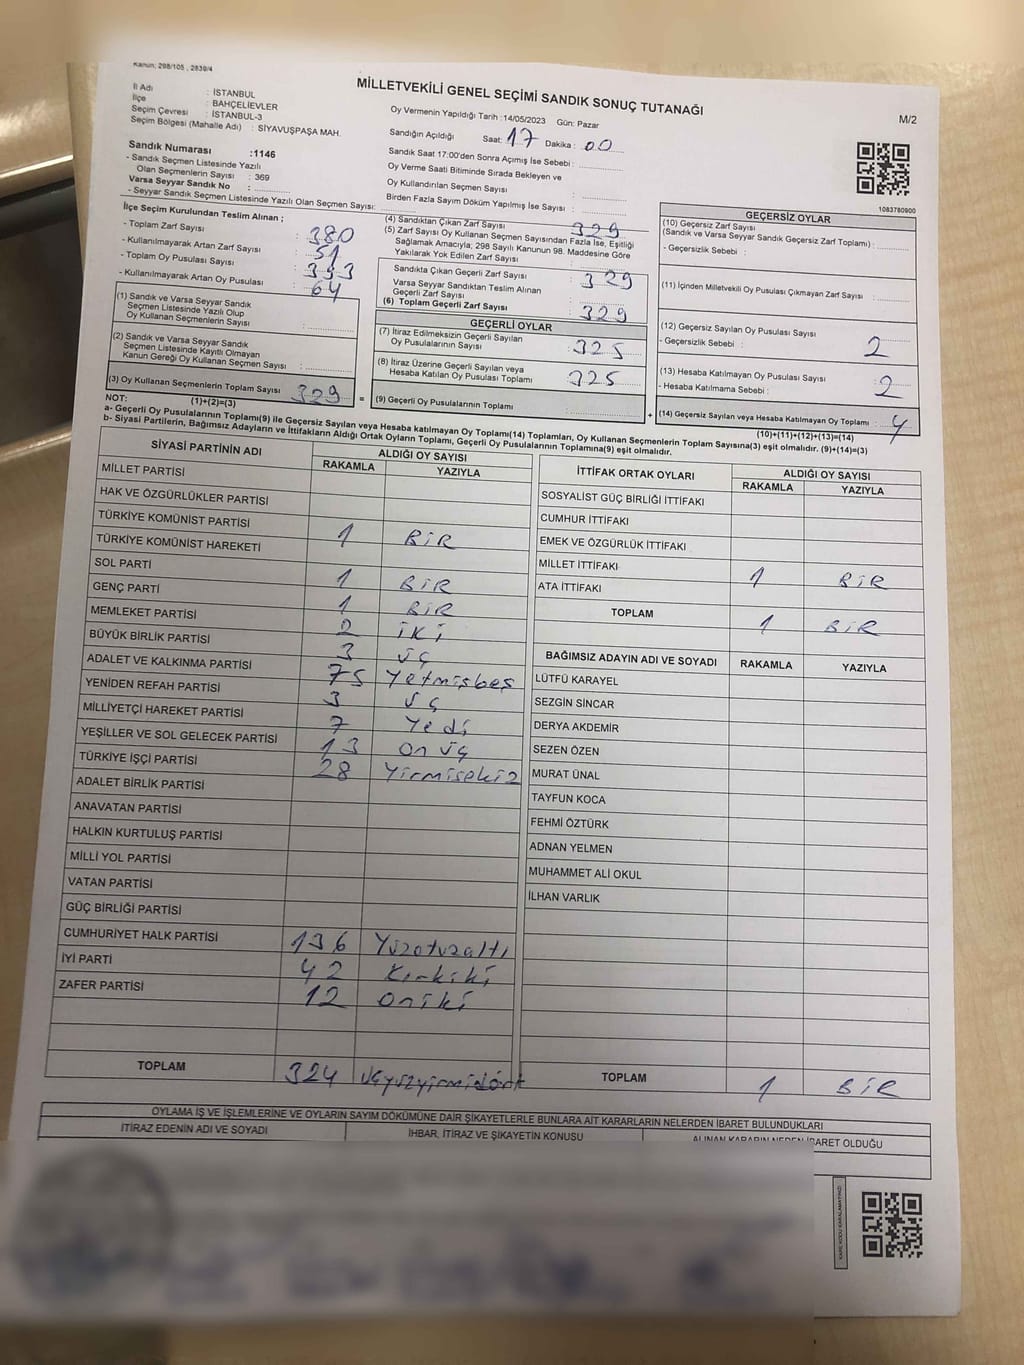 Kanun: 298/105 , 2839/4
MİLLETVEKİLİ GENEL SEÇİMİ SANDIK SONUÇ TUTANAĞI
M/2
İl Adı : İSTANBUL
İlçe : BAHÇELİEVLER
Seçim Çevresi : İSTANBUL-3
Seçim Bölgesi (Mahalle Adı) : SİYAVUŞPAŞA MAH.
Sandık Numarası :1146
- Sandık Seçmen Listesinde Yazılı
Olan Seçmenlerin Sayısı : 369
Varsa Seyyar Sandık No :
- Seyyar Sandık Seçmen Listesinde Yazılı Olan Seçmen Sayısı:
Oy Vermenin Yapıldığı Tarih :14/05/2023 Gün: Pazar
Sandığın Açıldığı Saat: 17 Dakika : 00
Sandık Saat 17:00'den Sonra Açımış İse Sebebi :
Oy Verme Saati Bitiminde Sırada Bekleyen ve
Oy Kullandırılan Seçmen Sayısı :
Birden Fazla Sayım Döküm Yapılmış İse Sayısı :
1083780900
İlçe Seçim Kurulundan Teslim Alınan ;
- Toplam Zarf Sayısı : 380
- Kullanılmayarak Artan Zarf Sayısı : 51
- Toplam Oy Pusulası Sayısı : 393
- Kullanılmayarak Artan Oy Pusulası : 64
(1) Sandık ve Varsa Seyyar Sandık
Seçmen Listesinde Yazılı Olup
Oy Kullanan Seçmenlerin Sayısı :
(2) Sandık ve Varsa Seyyar Sandık
Seçmen Listesinde Kayıtlı Olmayan
Kanun Gereği Oy Kullanan Seçmen Sayısı :
(3) Oy Kullanan Seçmenlerin Toplam Sayısı : 329
(1)+(2)=(3)
(4) Sandıktan Çıkan Zarf Sayısı : 329
(5) Zarf Sayısı Oy Kullanan Seçmen Sayısından Fazla İse, Eşitliği
Sağlamak Amacıyla; 298 Sayılı Kanunun 98. Maddesine Göre
Yakılarak Yok Edilen Zarf Sayısı :
Sandıkta Çıkan Geçerli Zarf Sayısı : 329
Varsa Seyyar Sandıktan Teslim Alınan
Geçerli Zarf Sayısı :
(6) Toplam Geçerli Zarf Sayısı : 329
GEÇERLİ OYLAR
(7) İtiraz Edilmeksizin Geçerli Sayılan
Oy Pusulalarının Sayısı : 325
(8) İtiraz Üzerine Geçerli Sayılan veya
Hesaba Katılan Oy Pusulası Toplamı : 325
= (9) Geçerli Oy Pusulalarının Toplamı :
GEÇERSİZ OYLAR
(10) Geçersiz Zarf Sayısı
(Sandık ve Varsa Seyyar Sandık Geçersiz Zarf Toplamı) :
- Geçersizlik Sebebi :
(11) İçinden Milletvekili Oy Pusulası Çıkmayan Zarf Sayısı :
(12) Geçersiz Sayılan Oy Pusulası Sayısı : 2
- Geçersizlik Sebebi :
(13) Hesaba Katılmayan Oy Pusulası Sayısı : 2
- Hesaba Katılmama Sebebi :
+ (14) Geçersiz Sayılan veya Hesaba Katılmayan Oy Toplamı : 4
(10)+(11)+(12)+(13)=(14)
NOT:
a- Geçerli Oy Pusulalarının Toplamı(9) ile Geçersiz Sayılan veya Hesaba Katılmayan Oy Toplamı(14) Toplamları, Oy Kullanan Seçmenlerin Toplam Sayısına(3) eşit olmalıdır. (9)+(14)=(3)
b- Siyasi Partilerin, Bağımsız Adayların ve İttifakların Aldığı Ortak Oyların Toplamı, Geçerli Oy Pusulalarının Toplamına(9) eşit olmalıdır.
SİYASİ PARTİNİN ADI ALDIĞI OY SAYISI
RAKAMLA YAZIYLA
MİLLET PARTİSİ
HAK VE ÖZGÜRLÜKLER PARTİSİ
TÜRKİYE KOMÜNİST PARTİSİ
TÜRKİYE KOMÜNİST HAREKETİ 1 BİR
SOL PARTİ
GENÇ PARTİ 1 BİR
MEMLEKET PARTİSİ 1 BİR
BÜYÜK BİRLİK PARTİSİ 2 İKİ
ADALET VE KALKINMA PARTİSİ 3 üç
YENİDEN REFAH PARTİSİ 75 Yetmişbeş
MİLLİYETÇİ HAREKET PARTİSİ 3 üç
YEŞİLLER VE SOL GELECEK PARTİSİ 7 Yedi
TÜRKİYE İŞÇİ PARTİSİ 13 On üç
28 Yirmisekiz
ADALET BİRLİK PARTİSİ
ANAVATAN PARTİSİ
HALKIN KURTULUŞ PARTİSİ
MİLLİ YOL PARTİSİ
VATAN PARTİSİ
GÜÇ BİRLİĞİ PARTİSİ
CUMHURİYET HALK PARTİSİ 136 Yüzotuzaltı
İYİ PARTİ 42 Kırkiki
ZAFER PARTİSİ 12 Oniki
TOPLAM 324 üçyüzyirmidört
İTTİFAK ORTAK OYLARI ALDIĞI OY SAYISI
RAKAMLA YAZIYLA
SOSYALİST GÜÇ BİRLİĞİ İTTİFAKI
CUMHUR İTTİFAKI
EMEK VE ÖZGÜRLÜK İTTİFAKI
MİLLET İTTİFAKI 1 BİR
ATA İTTİFAKI
TOPLAM 1 BİR
BAĞIMSIZ ADAYIN ADI VE SOYADI RAKAMLA YAZIYLA
LÜTFÜ KARAYEL
SEZGİN SİNCAR
DERYA AKDEMİR
SEZEN ÖZEN
MURAT ÜNAL
TAYFUN KOCA
FEHMİ ÖZTÜRK
ADNAN YELMEN
MUHAMMET ALİ OKUL
İLHAN VARLIK
TOPLAM 1 BİR
OYLAMA İŞ VE İŞLEMLERİNE VE OYLARIN SAYIM DÖKÜMÜNE DAİR ŞİKAYETLERLE BUNLARA AİT KARARLARIN NELERDEN İBARET BULUNDUKLARI
İTİRAZ EDENİN ADI VE SOYADI İHBAR, İTİRAZ VE ŞİKAYETİN KONUSU ALINAN KARARIN NEDEN İBARET OLDUĞU
KARE KODU KARALAMAYINIZ!